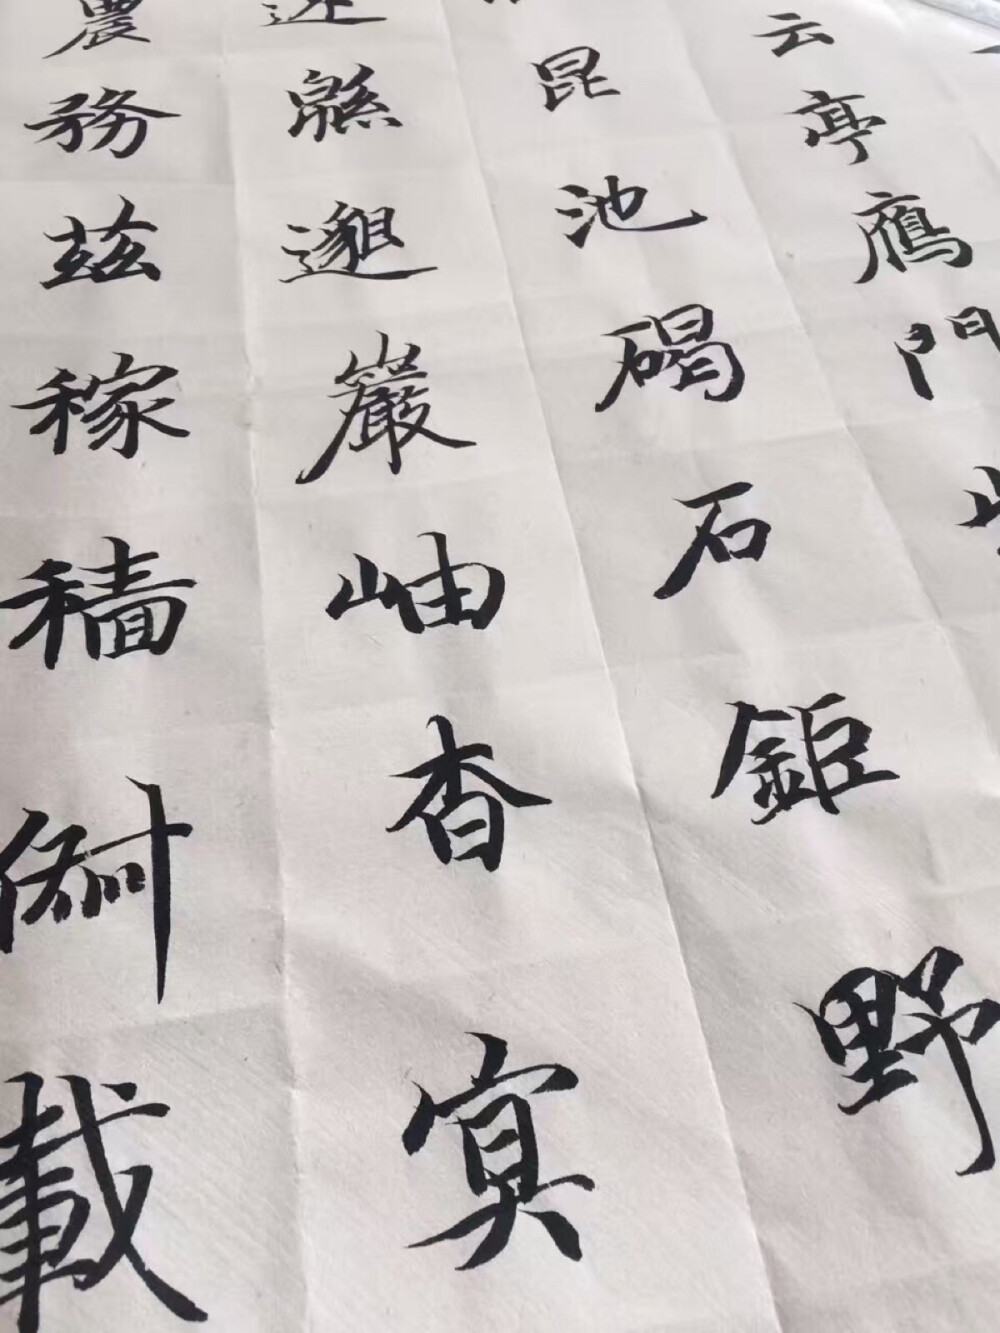 云亭鴈門
昆池碣石鉅野
遠緜邈巖岫杳冥
農務茲稼穡俶載